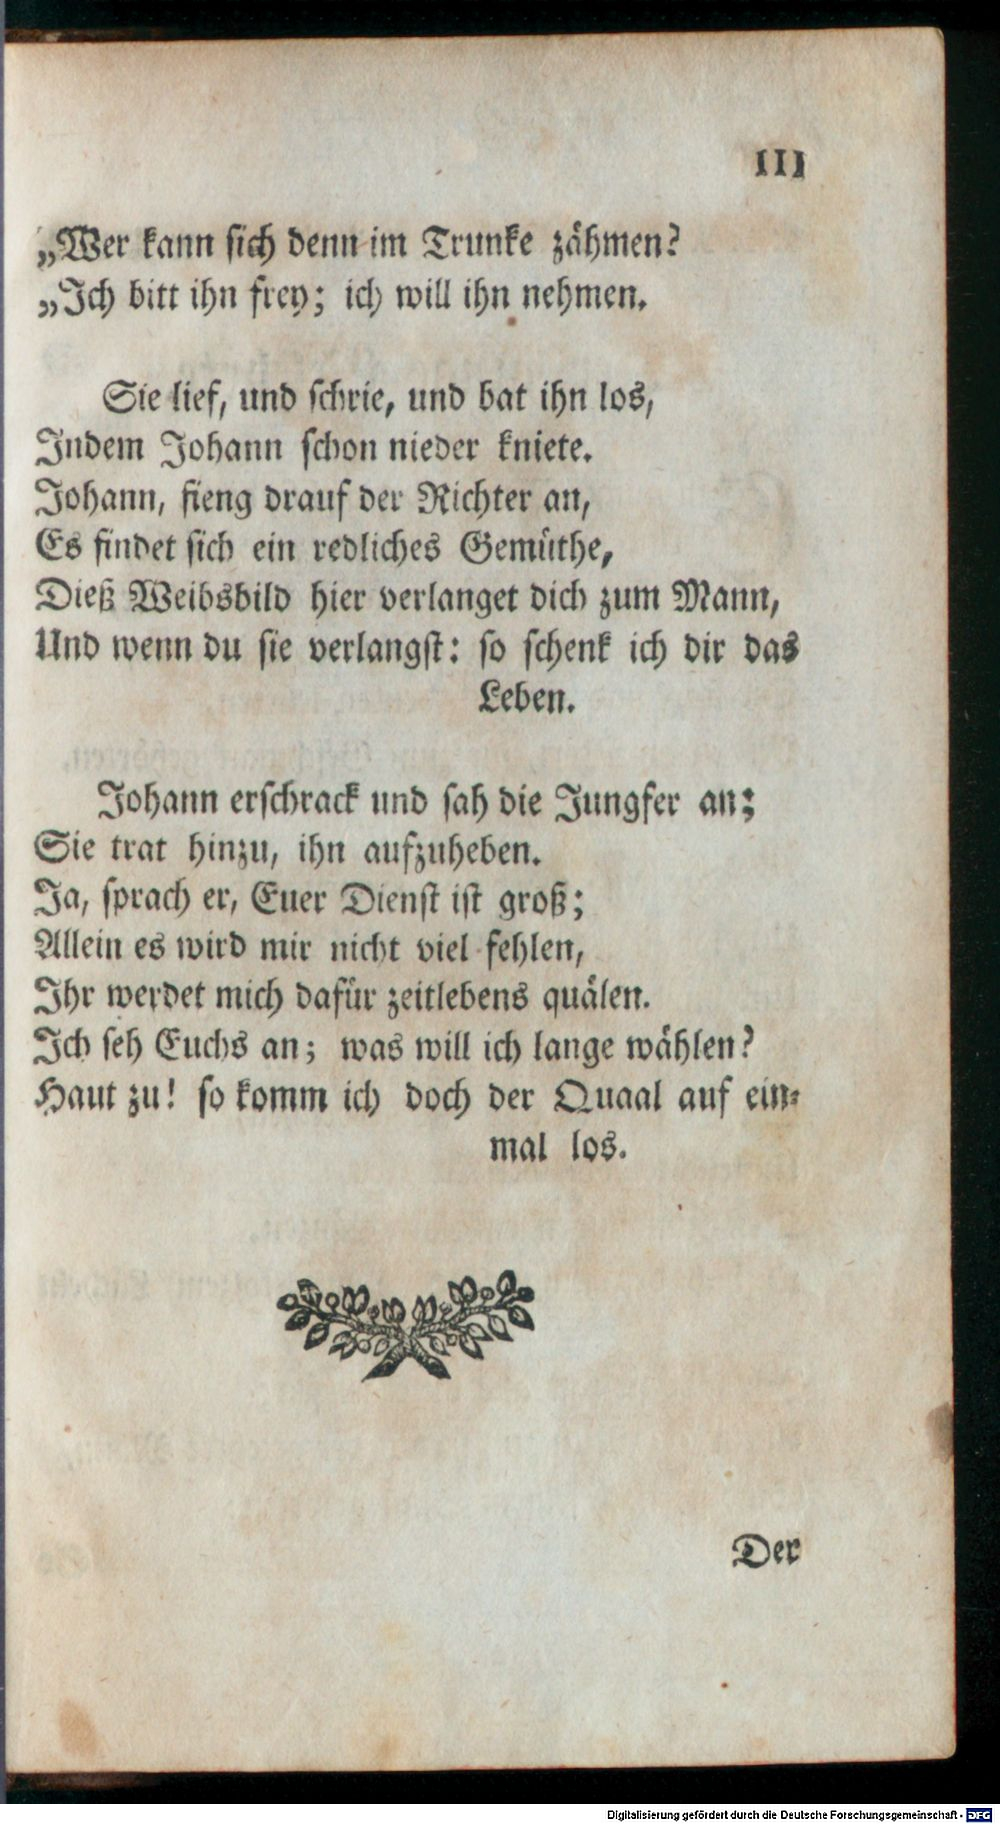 111
„Wer kann sich denn im Trunke zähmen?
„Ich bitt ihn frey; ich will ihn nehmen.
Sie lief, und schrie, und bat ihn los,
Indem Johann schon nieder kniete.
Johann, fieng drauf der Richter an,
Es findet sich ein redliches Gemüthe,
Dieß Weibsbild hier verlanget dich zum Mann,
Und wenn du sie verlangst: so schenk ich dir das
Leben.
Johann erschrack und sah die Jungfer an;
Sie trat hinzu, ihn aufzuheben.
Ja, sprach er, Euer Dienst ist groß;
Allein es wird mir nicht viel fehlen,
Ihr werdet mich dafür zeitlebens quälen.
Ich seh Euchs an; was will ich lange wählen?
Haut zu! so komm ich doch der Quaal auf ein-
mal los.
Der
Digitalisierung gefördert durch die Deutsche Forschungsgemeinschaft - DFG